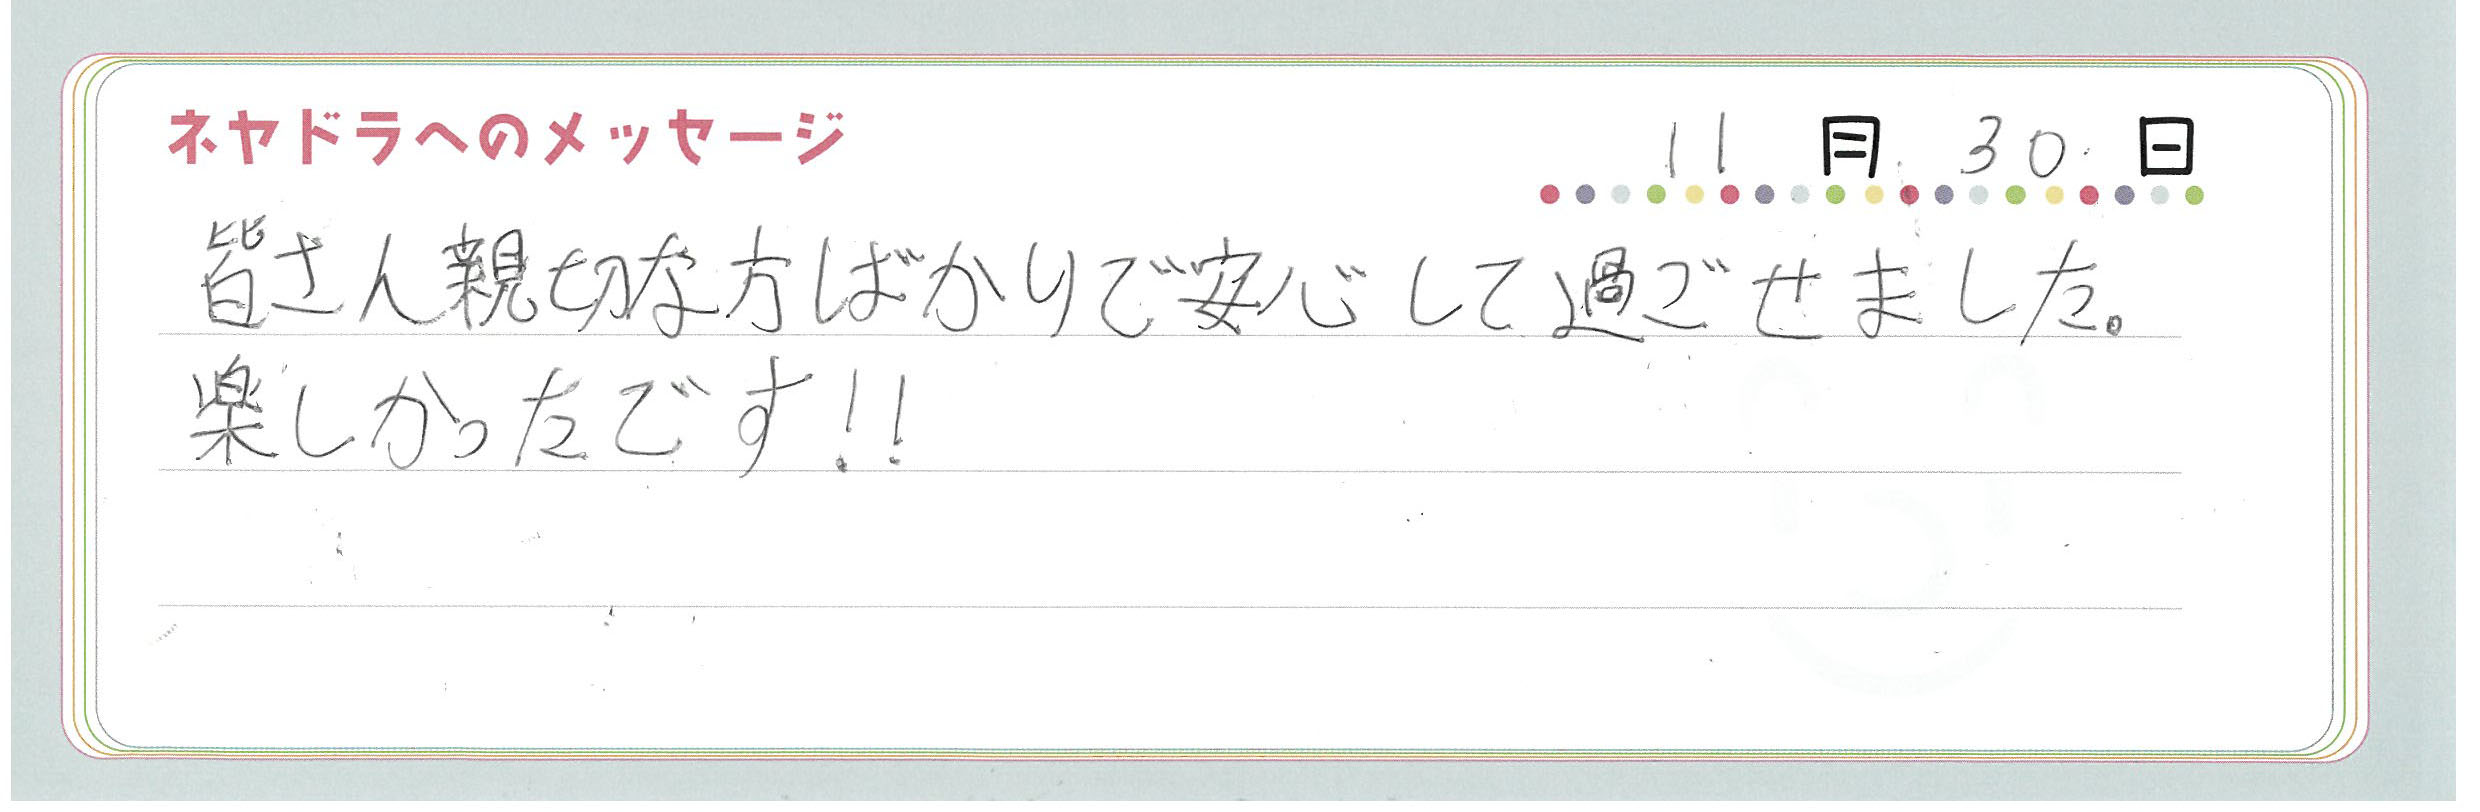 ネヤドラへのメッセージ 11月30日
皆さん親切な方ばかりで安心して過ごせました。
楽しかったです!!